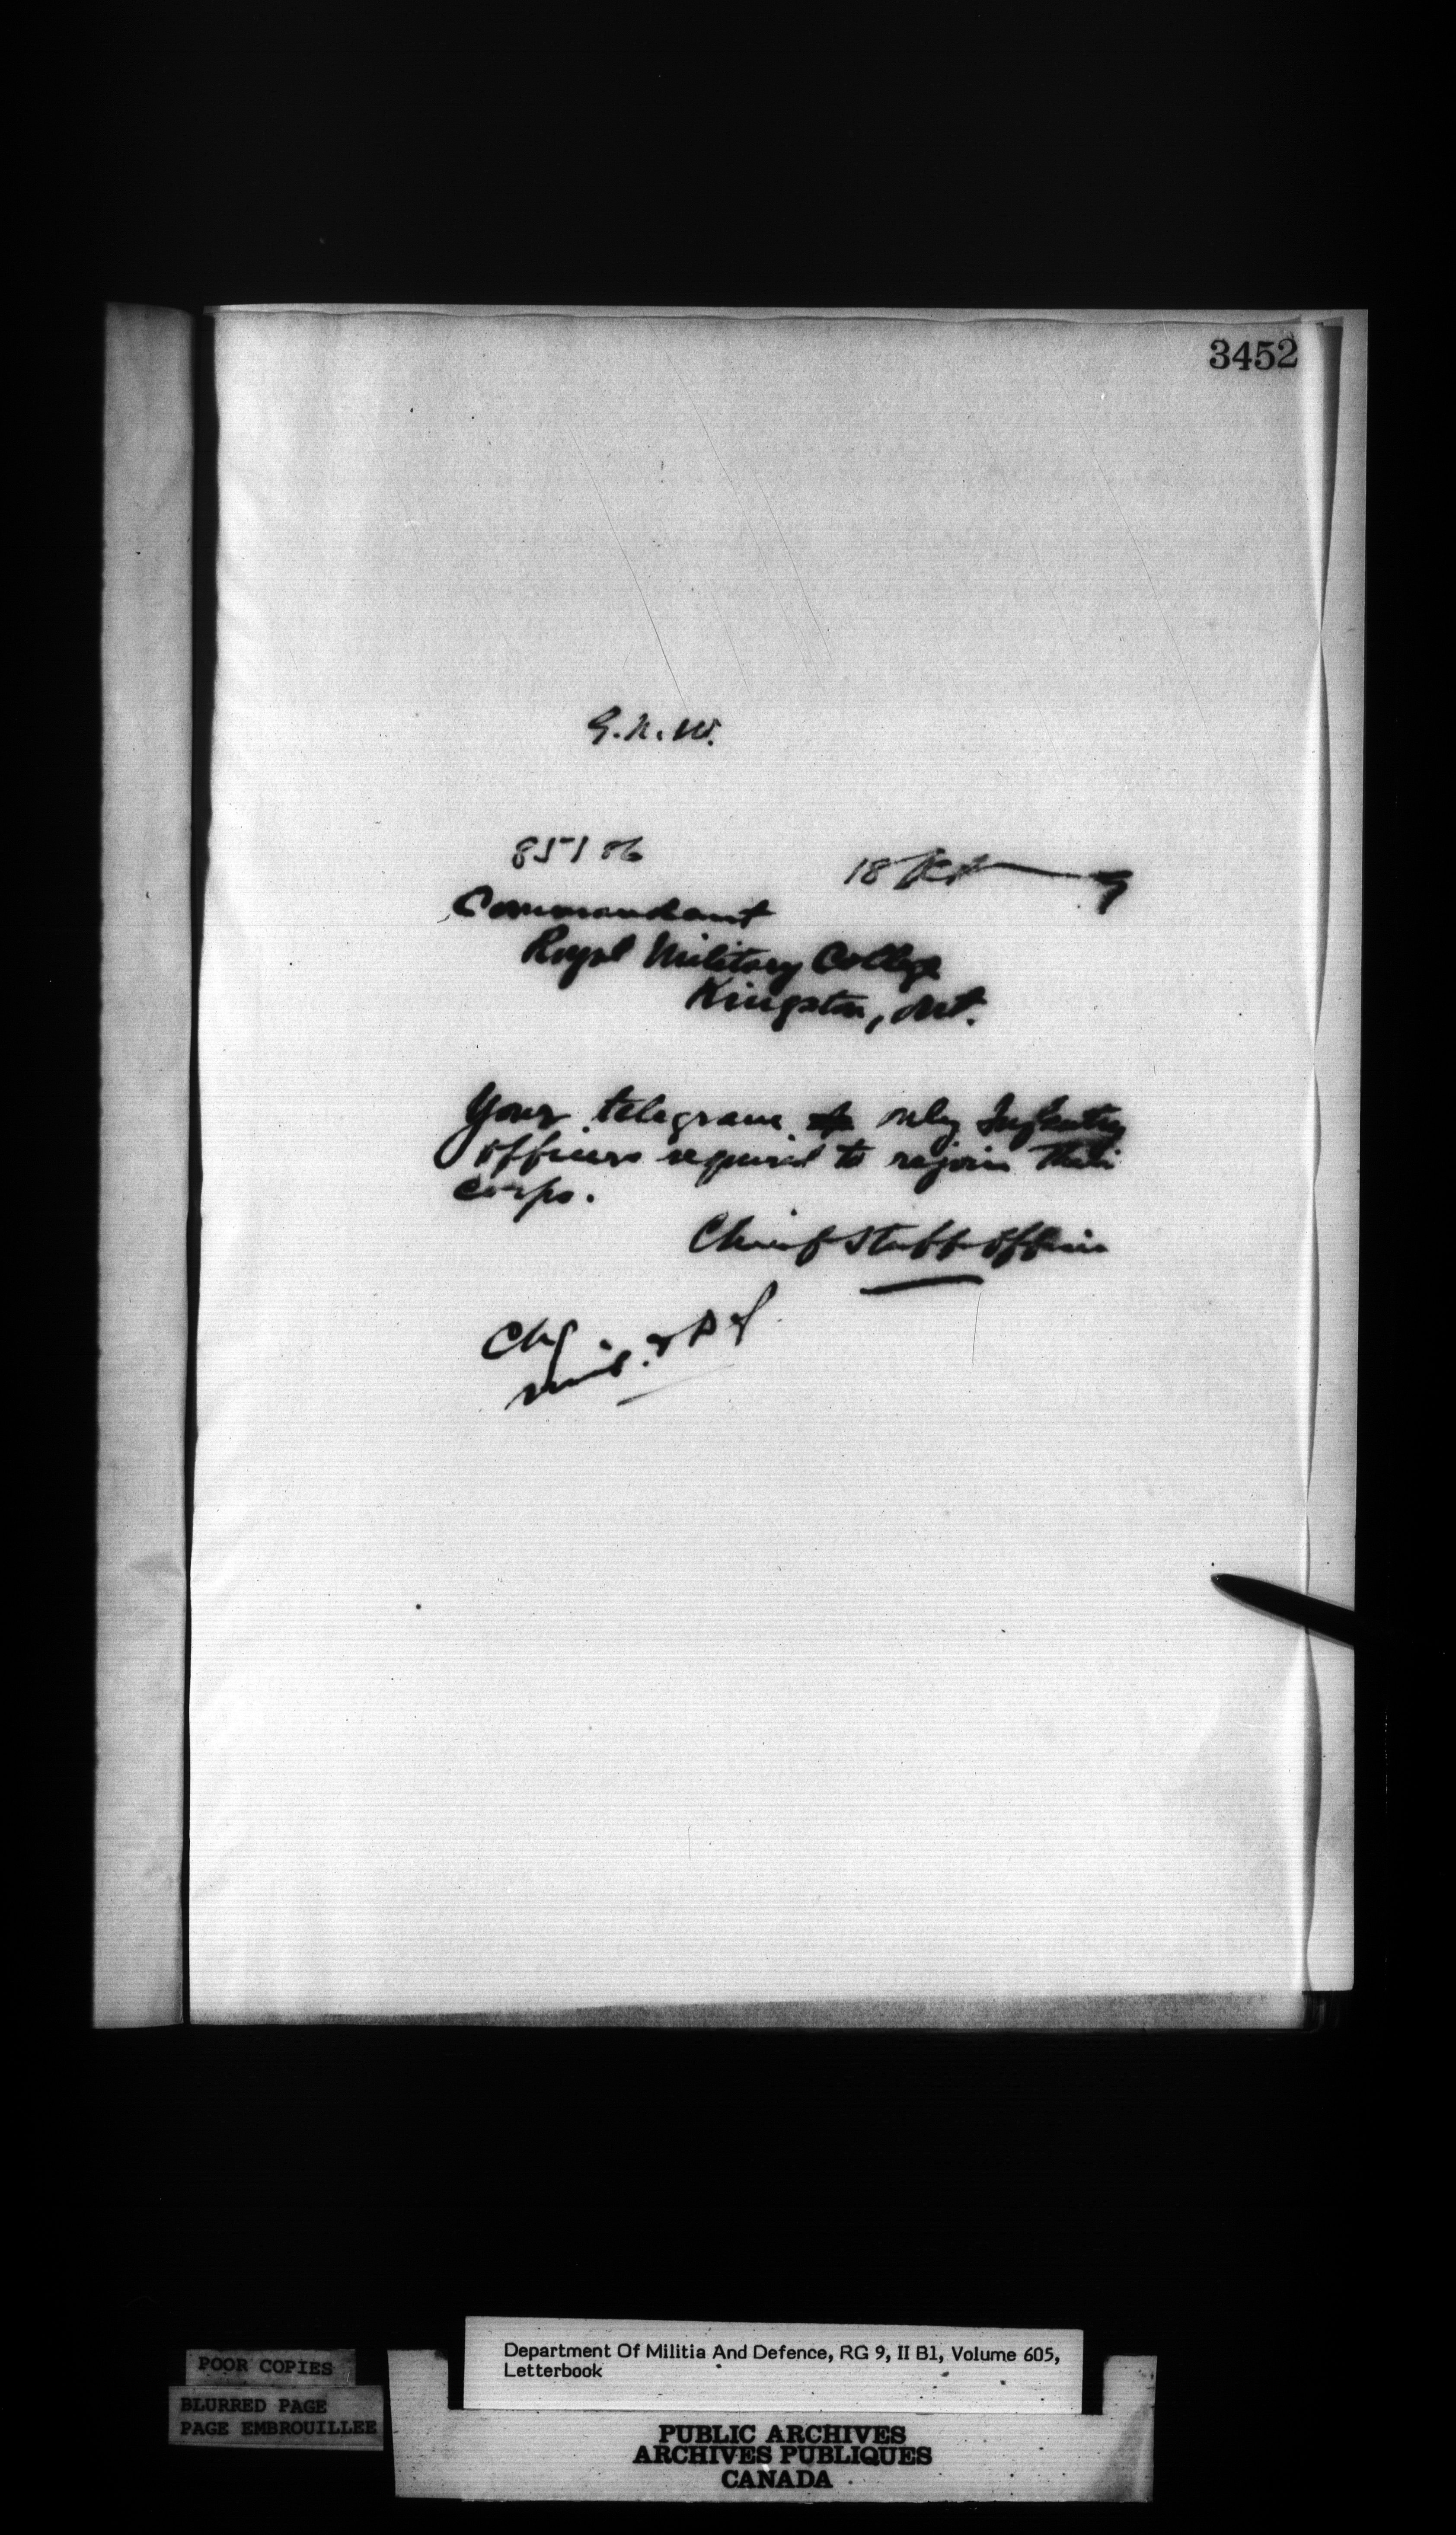 3452
G.N.W.
85186
18
Commandant
Royal Military College
Kingston, Ont.
Your telegram only Infantry
Officers required to rejoin their
corps.
Chief Staff Officer
Chg.
Mil. & Def
Department Of Militia And Defence, RG 9, II B1, Volume 605,
Letterbook
POOR COPIES
BLURRED PAGE
PAGE EMBROUILLEE
PUBLIC ARCHIVES
ARCHIVES PUBLIQUES
CANADA